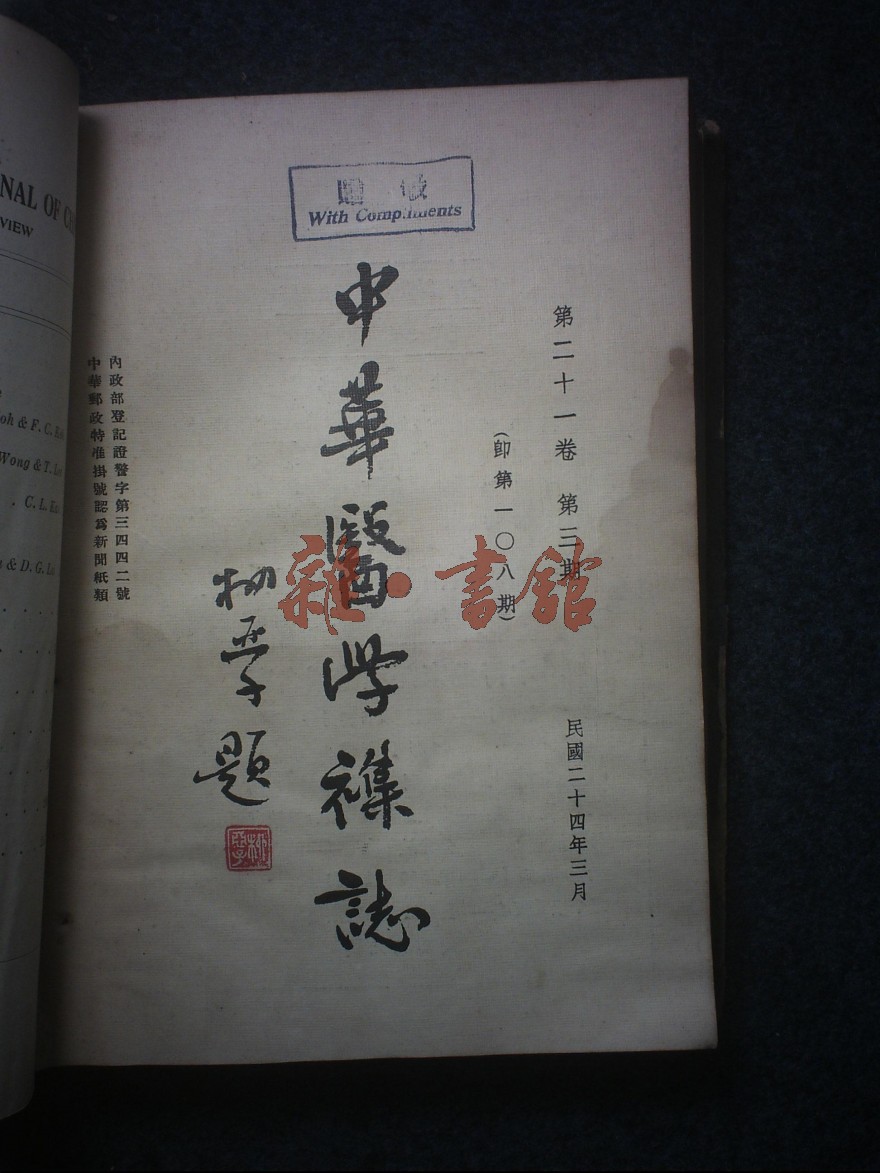 敬 贈
With Compliments
第二十一卷 第三期
(卽第一〇八期)
民國二十四年三月
中華醫學襍誌
柳亞子題
柳亞子
內政部登記證警字第三四四二號
中華郵政特准掛號認爲新聞紙類
雜·書館
NAL OF
VIEW
oh & F. C.
Wong & T.
. C. L.
& D. G.